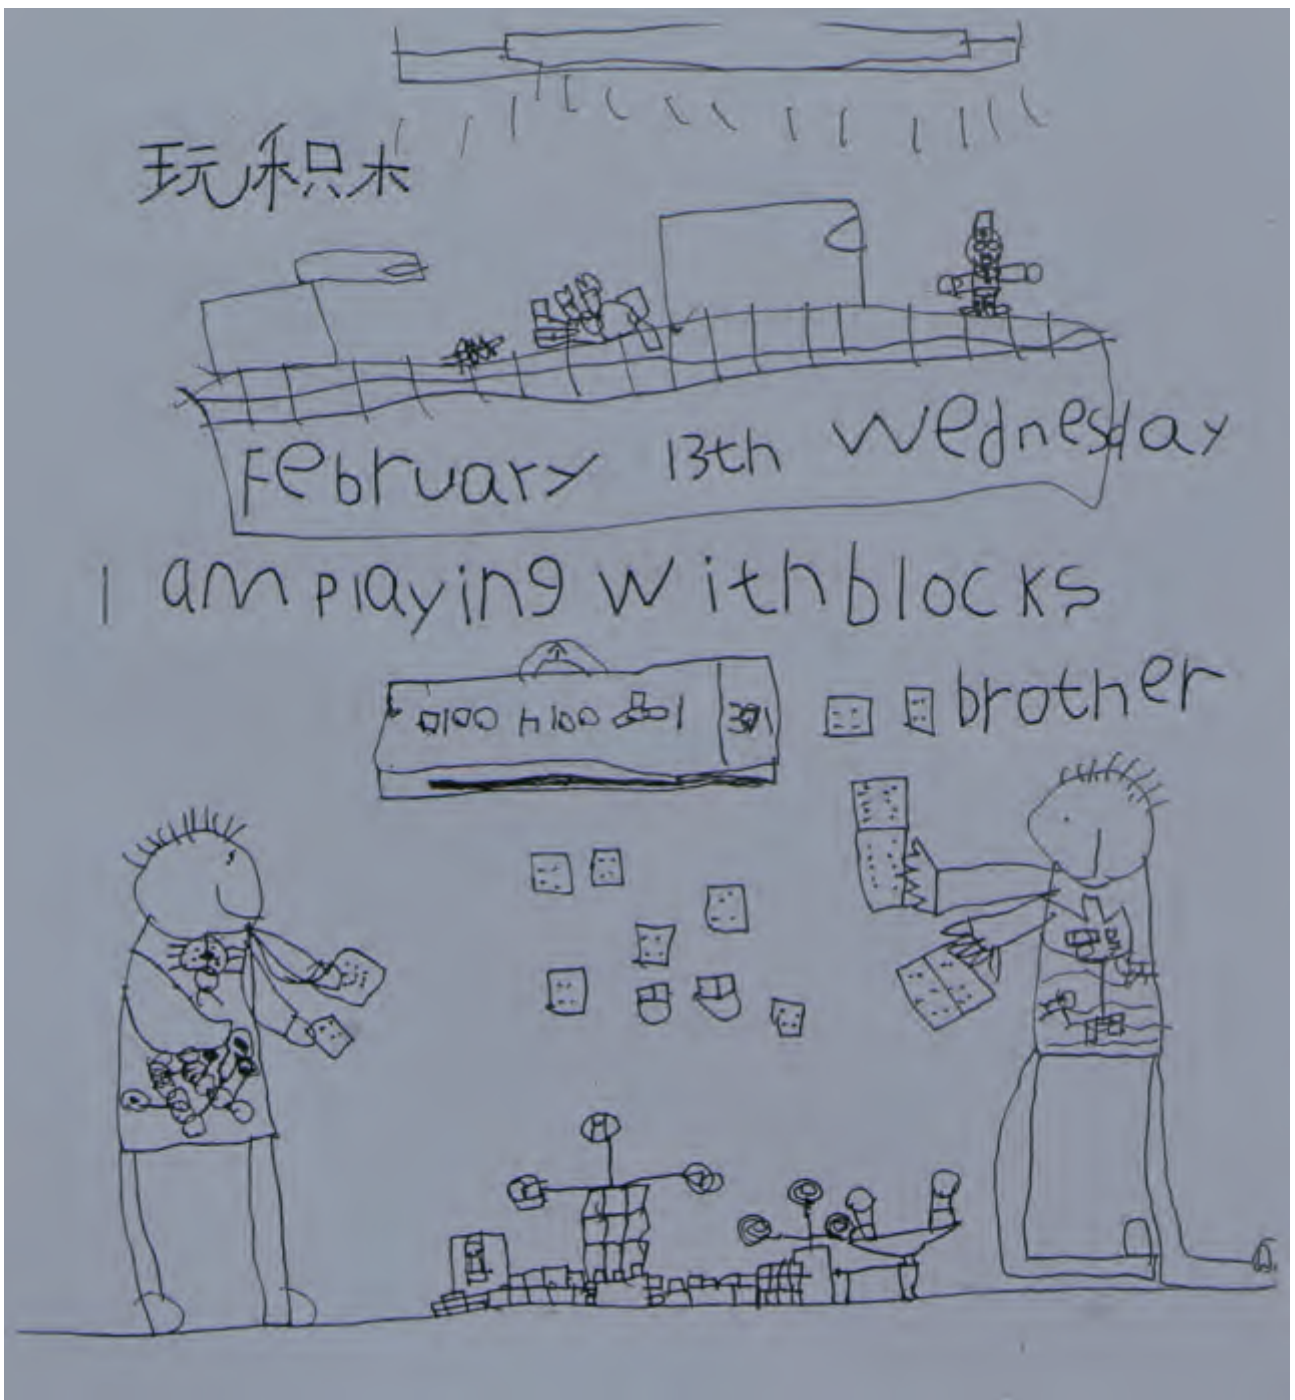 玩积木
February 13th Wednesday
I am playing with blocks
brother